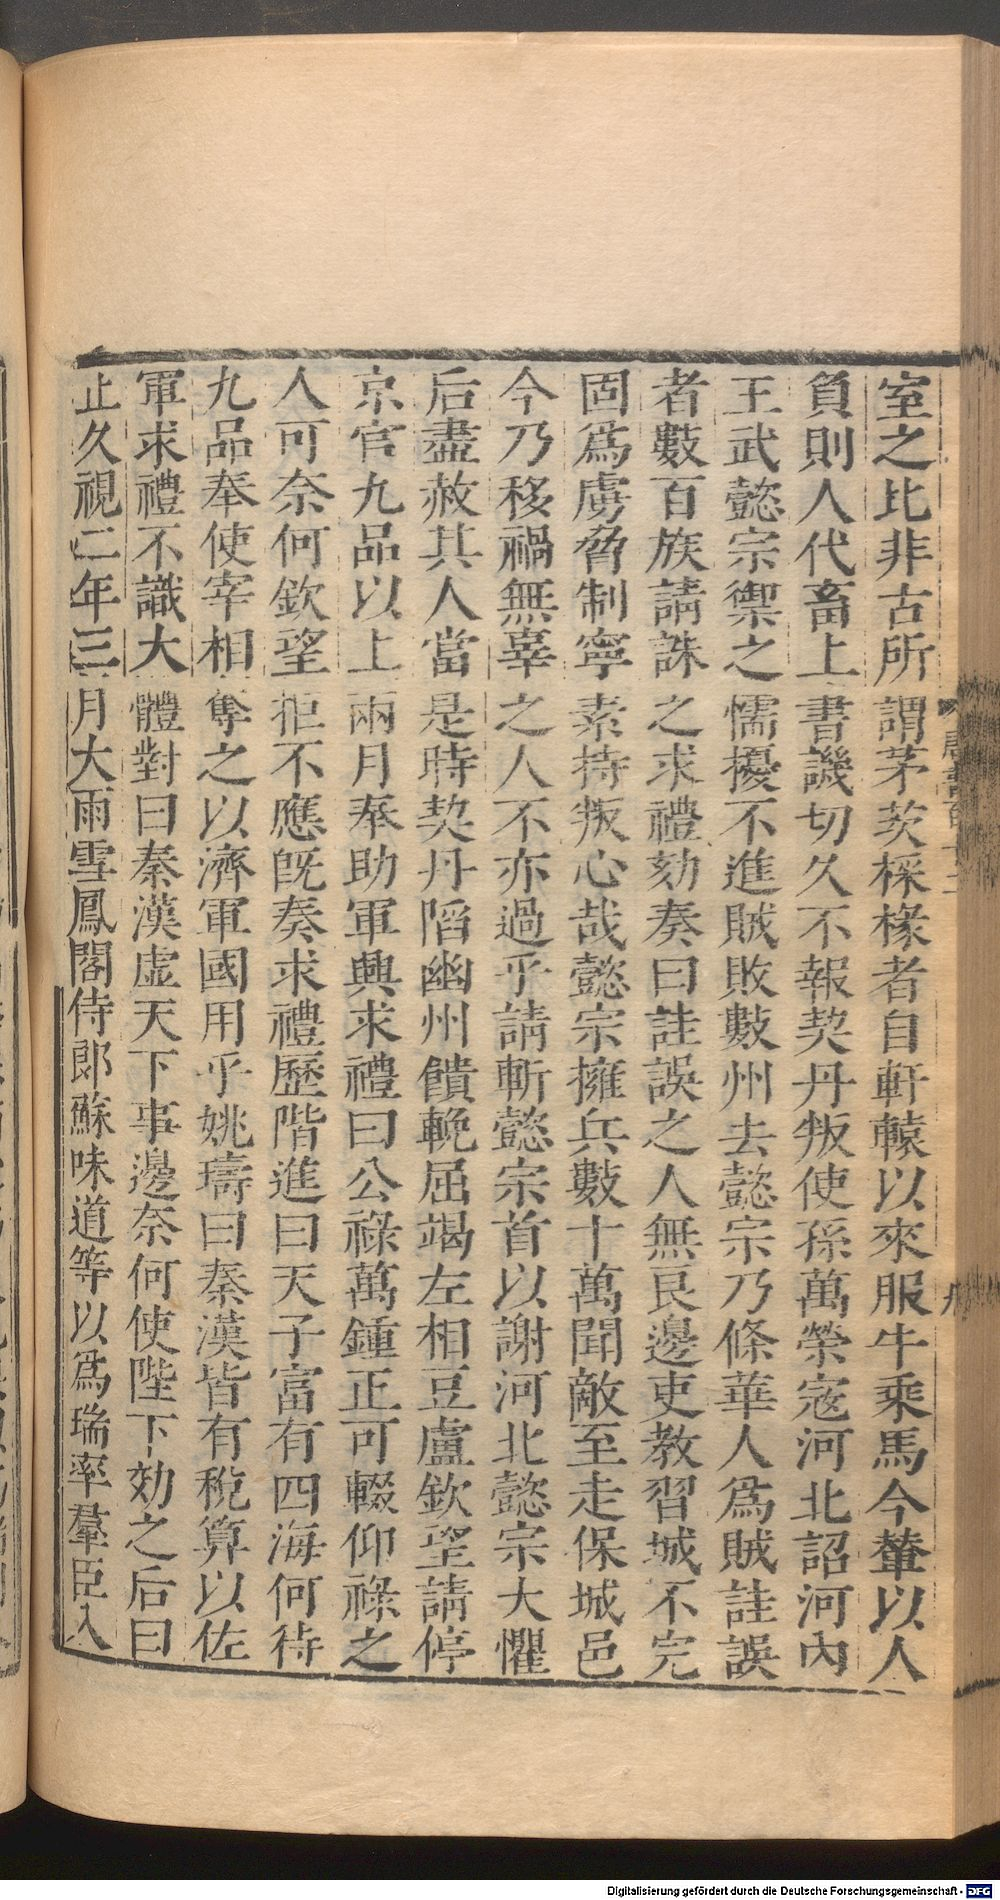 室之比非古所謂茅茨棌椽者自軒轅以來服牛乘馬今輦以人
負則人代畜上書譏切久不報契丹叛使孫萬榮寇河北詔河內
王武懿宗禦之懦擾不進賊敗數州去懿宗乃條華人爲賊詿誤
者數百族請誅之求禮劾奏曰詿誤之人無良邊吏教習城不完
固爲虜脅制寧素持叛心哉懿宗擁兵數十萬聞敵至走保城邑
今乃移禍無辜之人不亦過乎請斬懿宗首以謝河北懿宗大懼
后盡赦其人當是時契丹陷幽州饋輓屈竭左相豆盧欽望請停
京官九品以上兩月奉助軍興求禮曰公祿萬鍾正可輟仰祿之
人可奈何欽望拒不應旣奏求禮歷階進曰天子富有四海何待
九品奉使宰相奪之以濟軍國用乎姚璹曰秦漢皆有稅算以佐
軍求禮不識大體對曰秦漢虛天下事邊奈何使陛下効之后曰
止久視二年三月大雨雪鳳閣侍郎蘇味道等以爲瑞率羣臣入
Digitalisierung gefördert durch die Deutsche Forschungsgemeinschaft - DFG